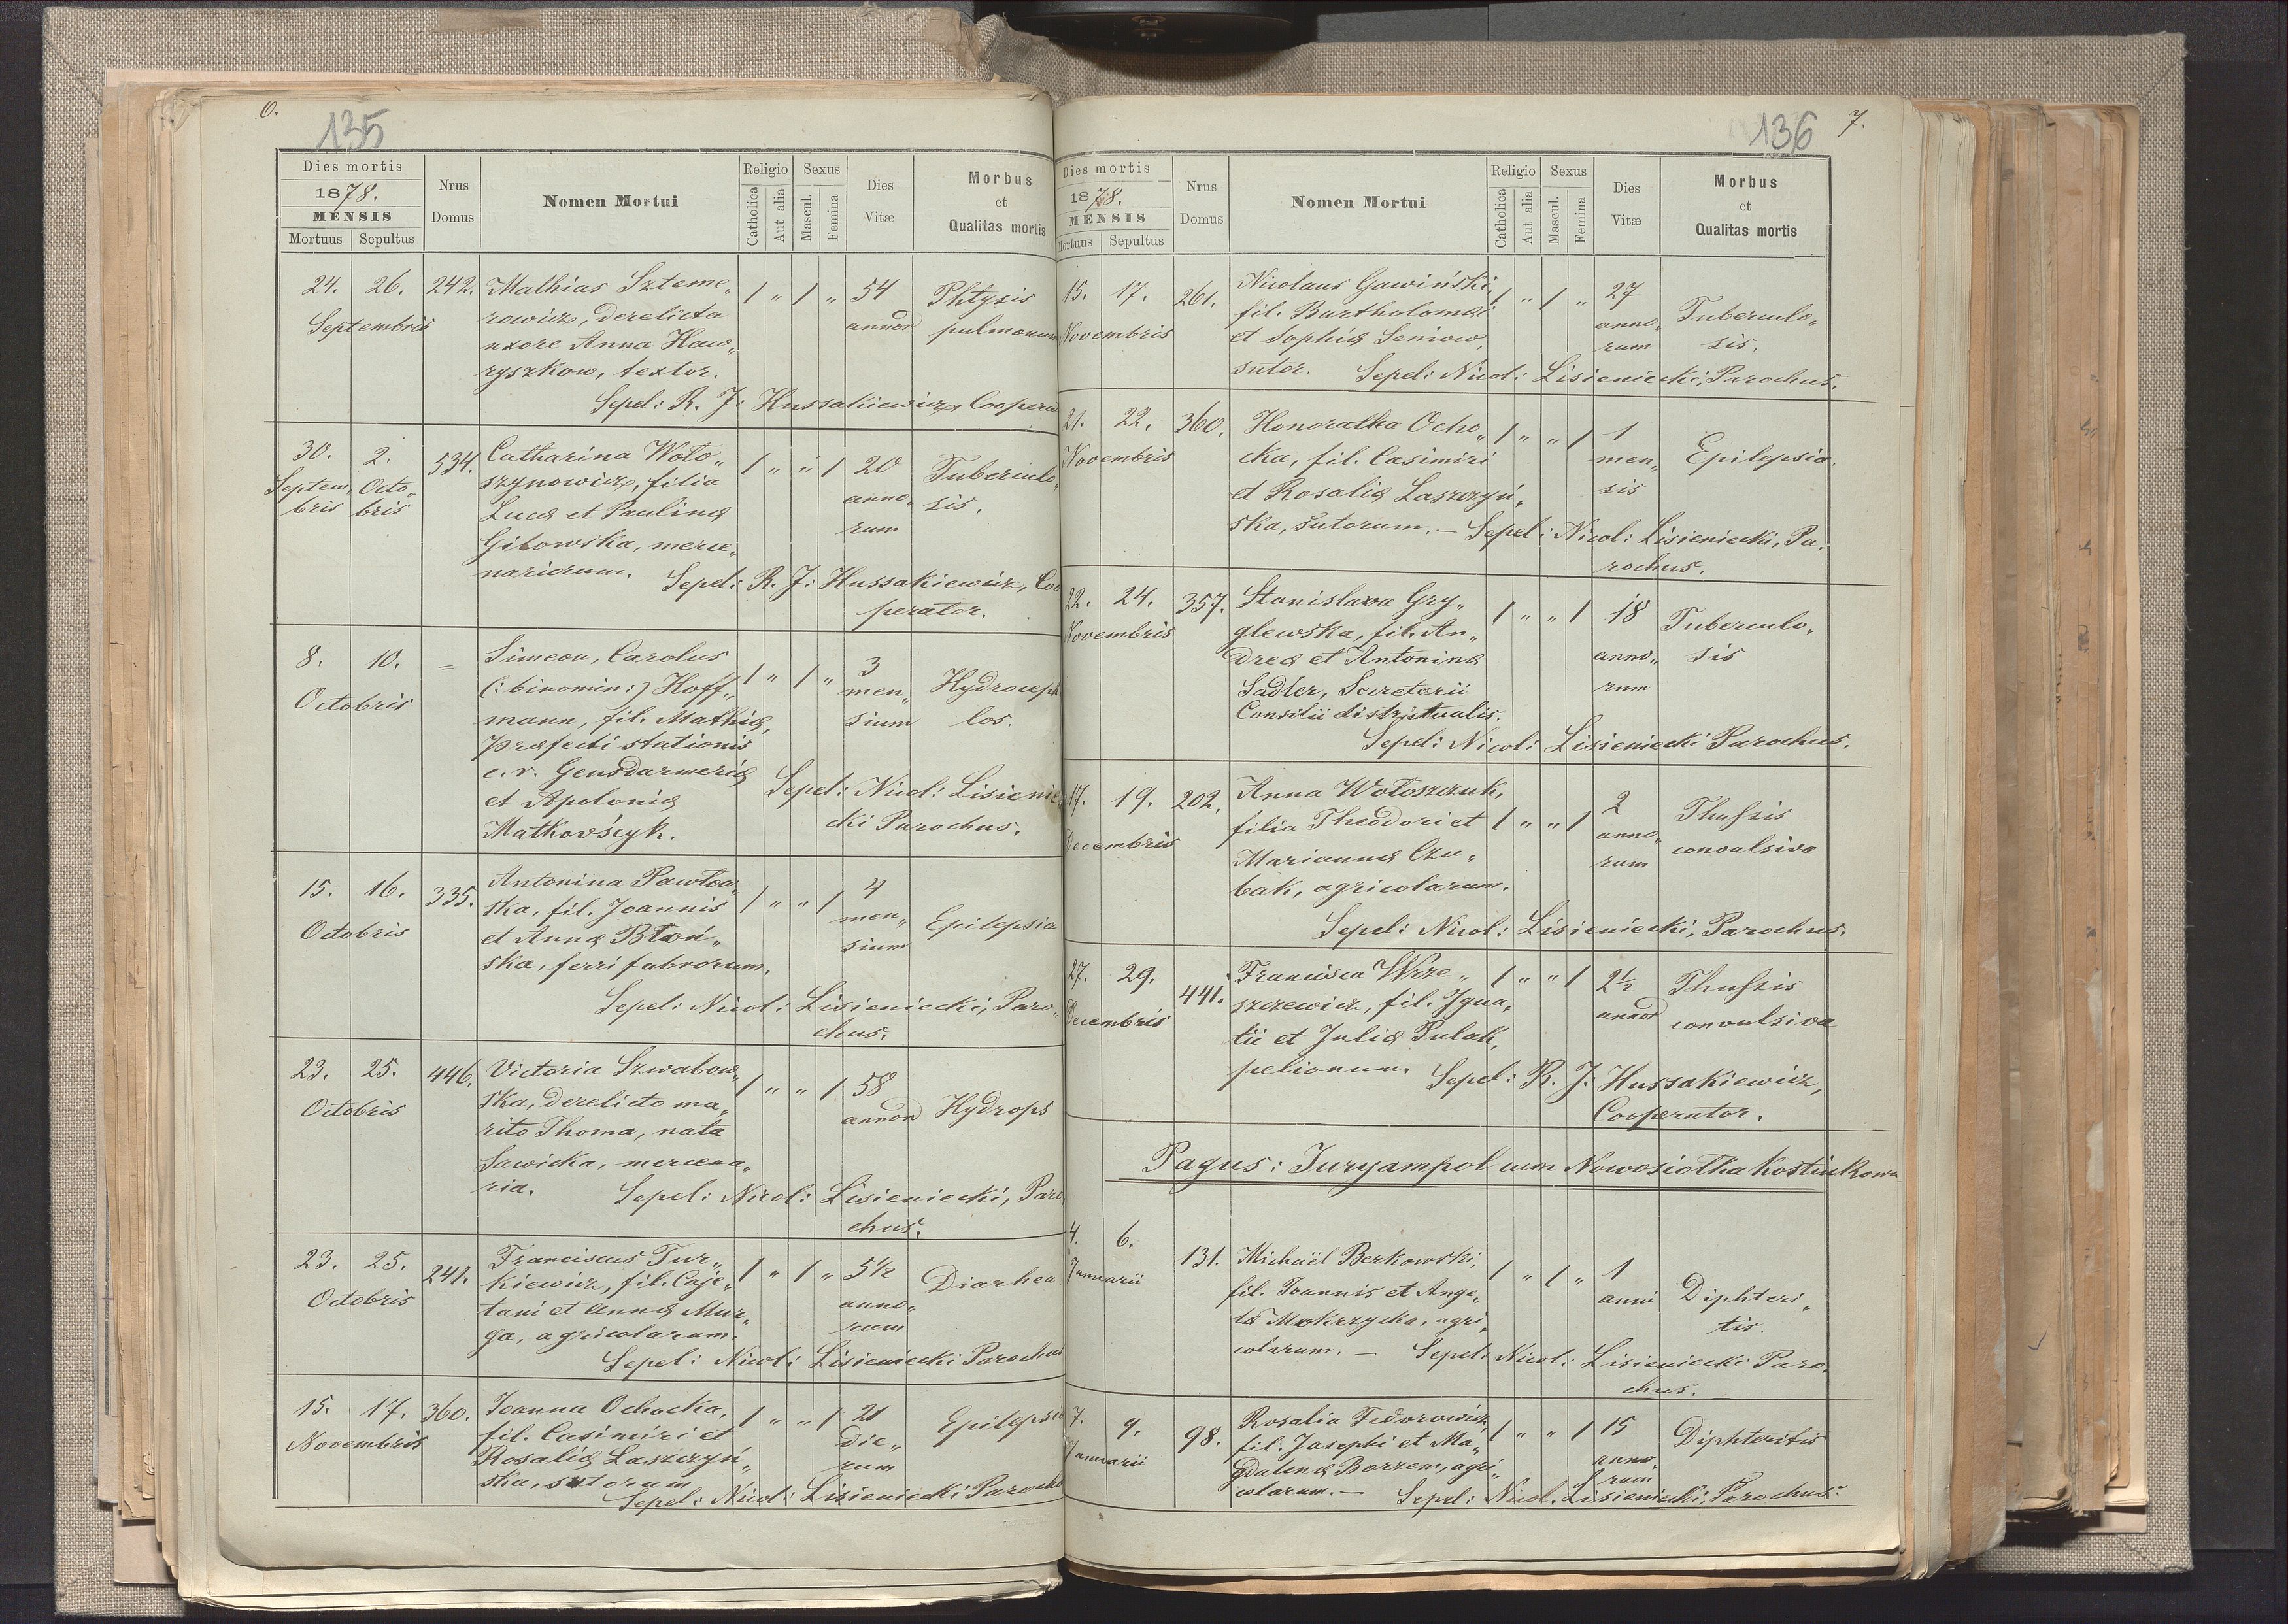 6.
135
Dies mortis
1878.
MENSIS
Mortuus Sepultus
Nrus
Domus
Nomen Mortui
Religio
Catholica
Aut alia
Sexus
Mascul.
Femina
Dies
Vitæ
Morbus
et
Qualitas mortis
24. 26. 242. Mathias Szteme„ 1 „ 1 „ 54 Phtysis
Septembris rowicz, derelicta annor pulmonum
uxore Anna Haw„
ryszkow, textor.
Sepel: R. J: Hussakiewicz, Coopera
30. 2. 534. Catharina Woło„ 1 „ „ 1 20 Tuberculo„
Septem„ Octo„ szynowicz, filia anno„ sis.
bris bris Lucæ et Paulinæ rum
Gibowska, merce„
nariorum. Sepel: R. J: Hussakiewicz, Coo
perator.
8. 10. = Simeon, Carolus 1 „ 1 „ 3 Hydroceph
Octobris (: binomin:) Hoff„ men„ los.
mann, fil. Mathiæ, sium
præfecti stationis
c. r. Gensdarmeriæ
et Apoloniæ Sepel: Nicol: Lisienie
Matkovścyk. cki Parochus.
15. 16. 335. Antonina Pawłow„ 1 „ „ 1 4 Epilepsia
Octobris ska, fil. Joannis men„
et Annæ Błoń„ sium
ska, ferri fabrorum.
Sepel: Nicol: Lisieniecki, Paro„
chus.
23. 25. 446. Victoria Szwabow„ 1 „ „ 1 58 Hydrops
Octobris ska, derelicto ma„ annor
rito Thoma, nata
Sawicka, mercena„
ria. Sepel: Nicol: Lisieniecki, Paro
chus.
23. 25. 241. Franciscus Tur„ 1 „ 1 „ 5½ Diarhea
Octobris kiewicz, fil. Caje„ anno„
tani et Annæ Mur„ rum
ga, agricolarum.
Sepel: Nicol: Lisieniecki Parochus
15. 17. 360. Joanna Ochocka, 1 „ „ 1 21 Epilepsia
Novembris fil. Casimiri et die„
Rosaliæ Laszczyń„ rum
ska, sutorum
Sepel: Nicol: Lisieniecki Parochus
7.
136
Dies mortis
1878.
MENSIS
Mortuus Sepultus
Nrus
Domus
Nomen Mortui
Religio
Catholica
Aut alia
Sexus
Mascul.
Femina
Dies
Vitæ
Morbus
et
Qualitas mortis
15. 17. 261. Nicolaus Gawiński, 1 „ 1 „ 27 Tuberculo„
Novembris fil. Bartholomæi anno„ sis.
et Sophiæ Seniow, rum
sutor. Sepel: Nicol: Lisieniecki, Parochus.
21. 22. 360. Honoratha Ocho„ 1 „ „ 1 1 Epilepsia.
Novembris cka, fil. Casimiri men„
et Rosaliæ Laszczyń„ sis
ska, sutorum. — Sepel: Nicol: Lisieniecki, Pa„
rochus.
22. 24. 357. Stanislava Gry„ 1 „ „ 1 18 Tuberculo„
Novembris glewska, fil. An„ anno„ sis
dreæ et Antoninæ rum
Sadler, Secretarii
Consilii districtualis.
Sepel: Nicol: Lisieniecki Parochus.
17. 19. 202. Anna Wołoszczuk, 1 „ „ 1 2 Thussis
Decembris filia Theodori et anno„ convulsiva
Mariannæ Czu„ rum
bak, agricolarum.
Sepel: Nicol: Lisieniecki, Parochus.
27. 29. 441. Francisca Wrze„ 1 „ „ 1 2½ Thussis
Decembris szczewicz, fil. Igna„ annor convulsiva
tii et Juliæ Pulak,
pelionum. Sepel: R. J: Hussakiewicz,
Cooperator.
Pagus: Juryampol cum Nowosiołka Kostiukowa
4. 6. 131. Michaël Berkowski, 1 „ 1 „ 1 Diphteri„
Januarii fil. Joannis et Ange„ anni tis.
læ Mokrzycka, agri„
colarum. — Sepel: Nicol: Lisieniecki Paro„
chus.
7. 9. 98. Rosalia Fedorowicz, 1 „ „ 1 15 Diphteritis
Januarii fil. Josephi et Ma„ anno„
gdalenæ Borzem, agri„ rum
colarum. — Sepel: Nicol. Lisieniecki, Parochus.